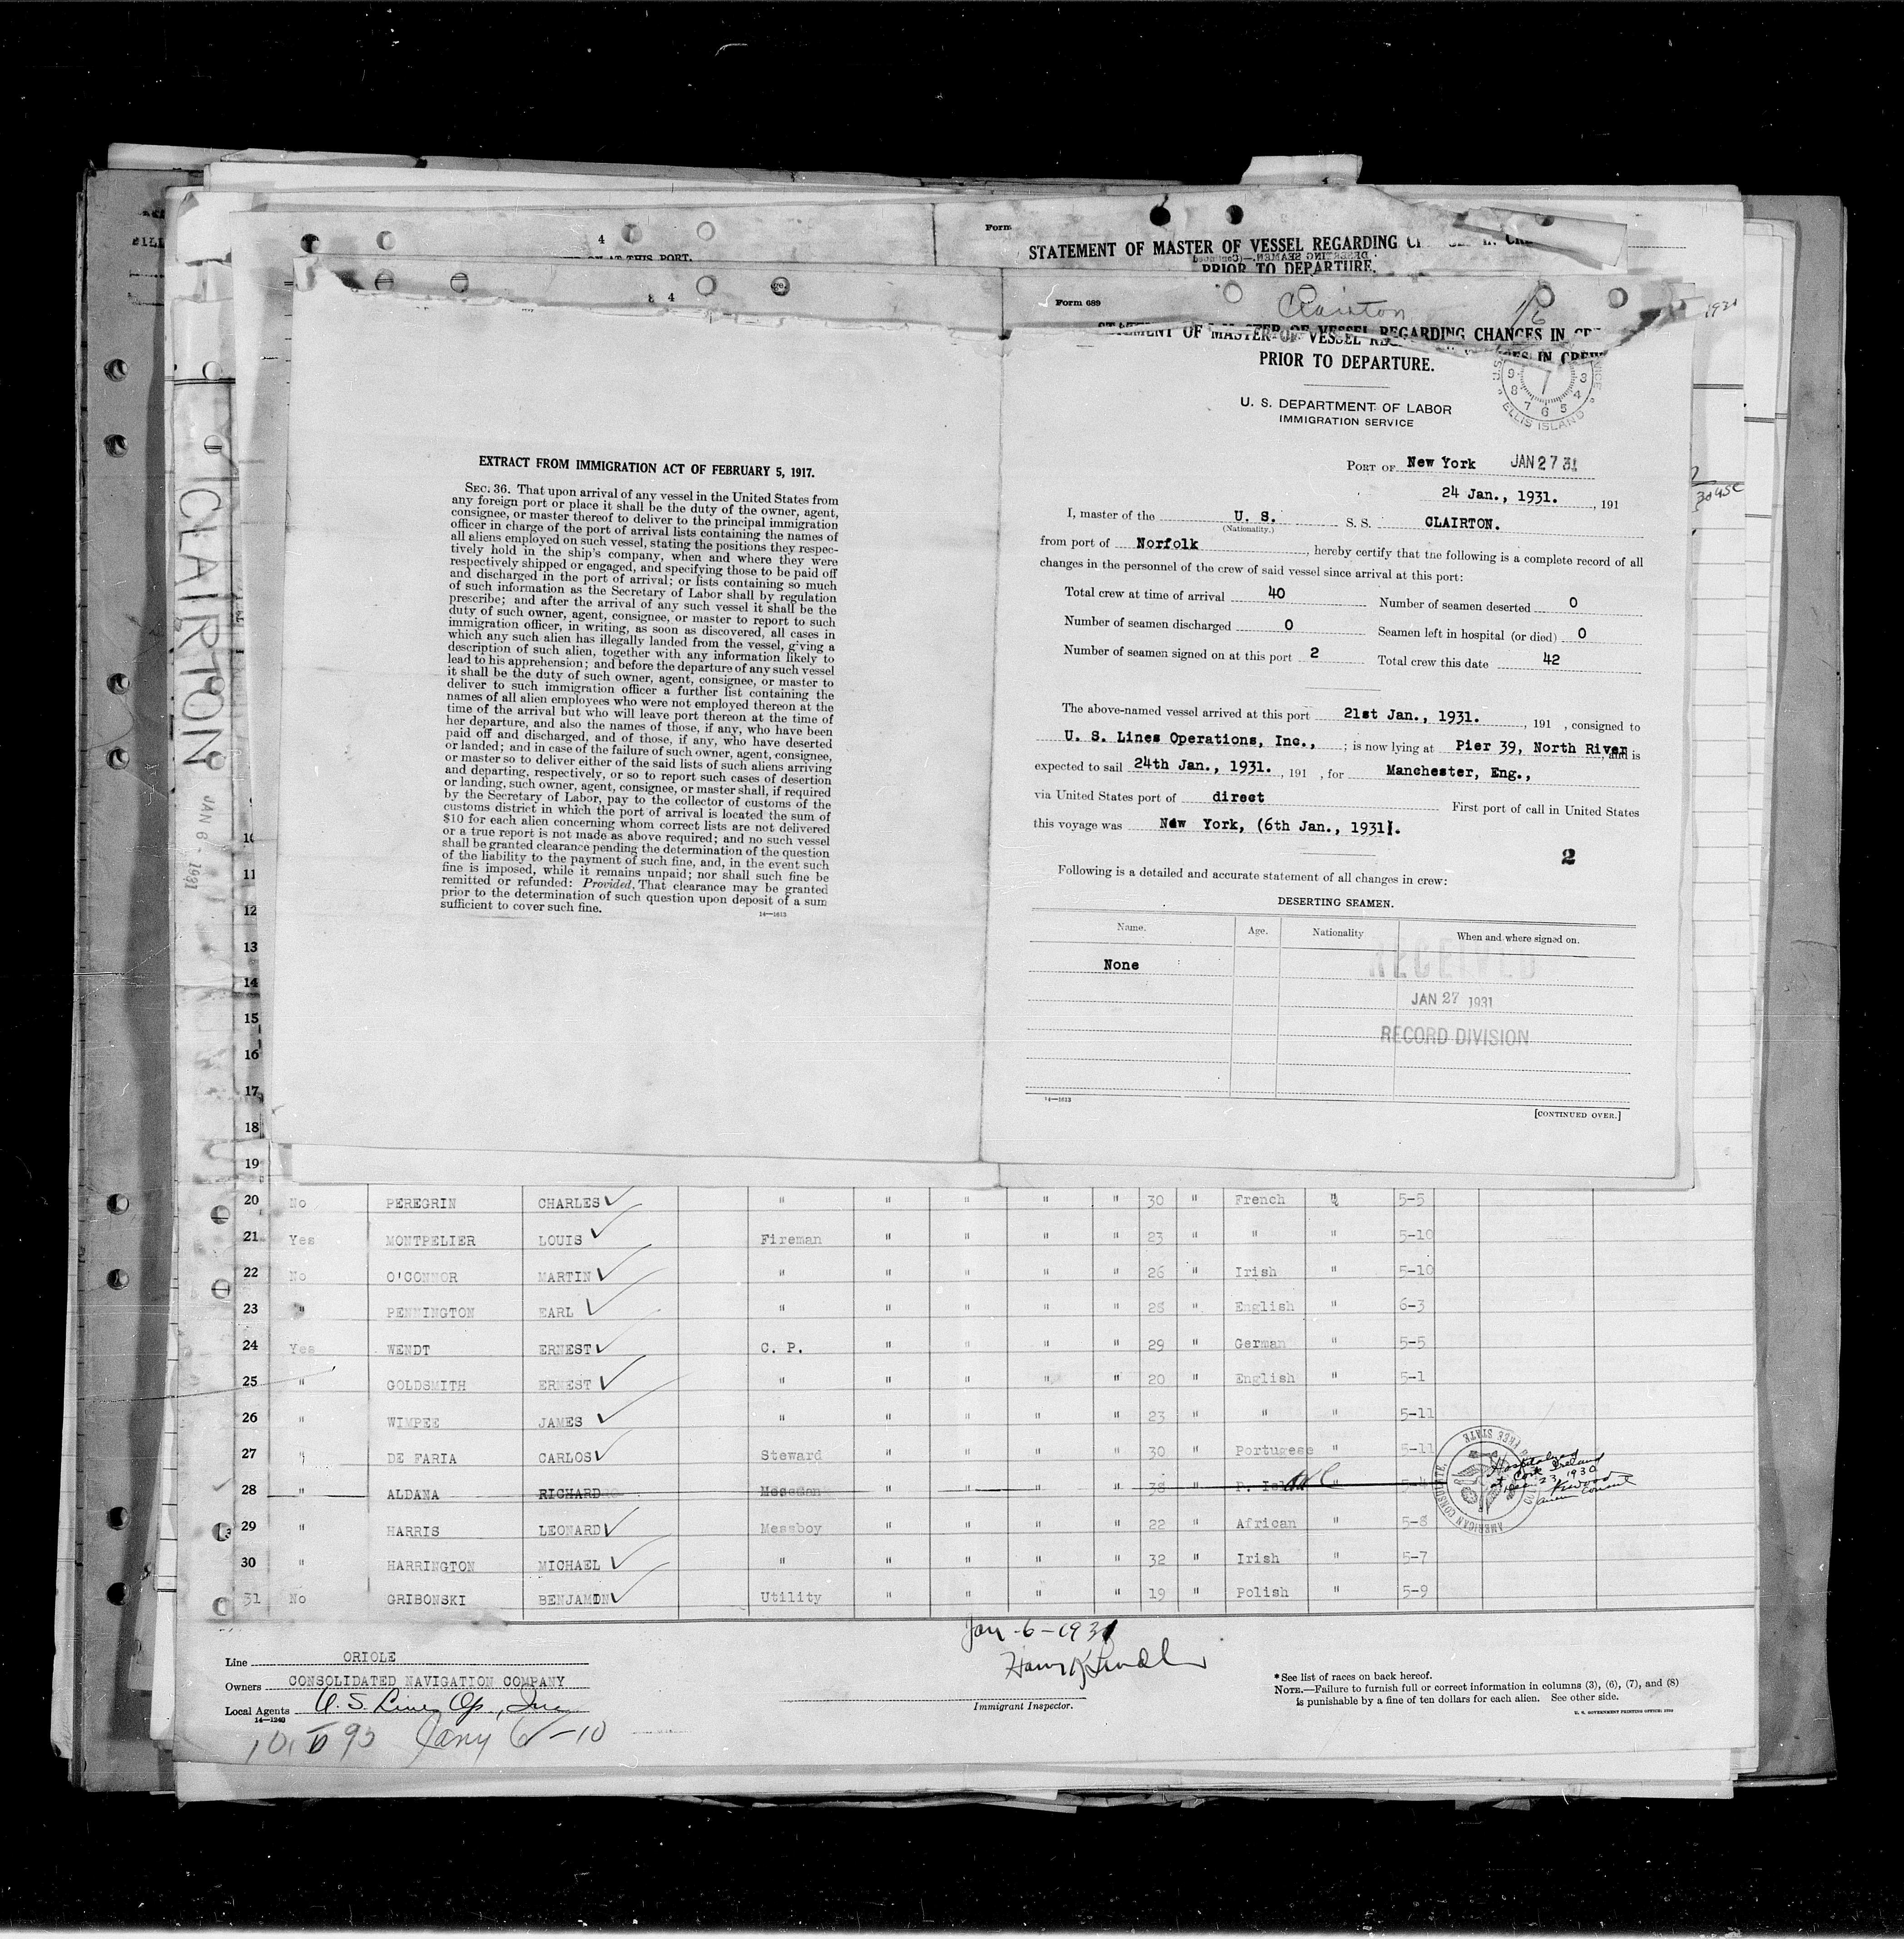 Form
STATEMENT OF MASTER OF VESSEL REGARDING
DESERTING SEAMEN.—(Continued
PRIOR TO DEPARTURE.
4
ON AT THIS PORT.
8 4
Form 689
Clairton
1/6
1931
STATEMENT OF MASTER OF VESSEL REGARDING CHANGES IN CREW
PRIOR TO DEPARTURE.
U. S. DEPARTMENT OF LABOR
IMMIGRATION SERVICE
ELLIS ISLAND
CLAIRTON
JAN 6 - 1931
EXTRACT FROM IMMIGRATION ACT OF FEBRUARY 5, 1917.
SEC. 36. That upon arrival of any vessel in the United States from
any foreign port or place it shall be the duty of the owner, agent,
consignee, or master thereof to deliver to the principal immigration
officer in charge of the port of arrival lists containing the names of
all aliens employed on such vessel, stating the positions they respec-
tively hold in the ship's company, when and where they were
respectively shipped or engaged, and specifying those to be paid off
and discharged in the port of arrival; or lists containing so much
of such information as the Secretary of Labor shall by regulation
prescribe; and after the arrival of any such vessel it shall be the
duty of such owner, agent, consignee, or master to report to such
immigration officer, in writing, as soon as discovered, all cases in
which any such alien has illegally landed from the vessel, giving a
description of such alien, together with any information likely to
lead to his apprehension; and before the departure of any such vessel
it shall be the duty of such owner, agent, consignee, or master to
deliver to such immigration officer a further list containing the
names of all alien employees who were not employed thereon at the
time of the arrival but who will leave port thereon at the time of
her departure, and also the names of those, if any, who have been
paid off and discharged, and of those, if any, who have deserted
or landed; and in case of the failure of such owner, agent, consignee,
or master so to deliver either of the said lists of such aliens arriving
and departing, respectively, or so to report such cases of desertion
or landing, such owner, agent, consignee, or master shall, if required
by the Secretary of Labor, pay to the collector of customs of the
customs district in which the port of arrival is located the sum of
$10 for each alien concerning whom correct lists are not delivered
or a true report is not made as above required; and no such vessel
shall be granted clearance pending the determination of the question
of the liability to the payment of such fine, and, in the event such
fine is imposed, while it remains unpaid; nor shall such fine be
remitted or refunded: Provided, That clearance may be granted
prior to the determination of such question upon deposit of a sum
sufficient to cover such fine.
14—1613
PORT OF New York JAN 27 31
24 Jan., 1931. , 191
I, master of the U. S. S. S. CLAIRTON.
(Nationality.)
from port of Norfolk , hereby certify that the following is a complete record of all
changes in the personnel of the crew of said vessel since arrival at this port:
Total crew at time of arrival 40 Number of seamen deserted 0
Number of seamen discharged 0 Seamen left in hospital (or died) 0
Number of seamen signed on at this port 2 Total crew this date 42
The above-named vessel arrived at this port 21st Jan., 1931. , 191 , consigned to
U. S. Lines Operations, Inc., ; is now lying at Pier 39, North River, and is
expected to sail 24th Jan., 1931. , 191 , for Manchester, Eng.,
via United States port of direct First port of call in United States
this voyage was New York, (6th Jan., 1931).
2
Following is a detailed and accurate statement of all changes in crew:
DESERTING SEAMEN.
Name. Age. Nationality When and where signed on.
None
RECEIVED
JAN 27 1931
RECORD DIVISION
14—1613
[CONTINUED OVER.]
10
11
12
13
14
15
16
17
18
19
20 No PEREGRIN CHARLES " " " " " 30 " French " 5-5
21 Yes MONTPELIER LOUIS Fireman " " " " 23 " " " 5-10
22 No O'CONNOR MARTIN " " " " " 26 " Irish " 5-10
23 " PENNINGTON EARL " " " " " 28 " English " 6-3
24 Yes WENDT ERNEST C. P. " " " " 29 " German " 5-5
25 " GOLDSMITH ERNEST " " " " " 20 " English " 5-1
26 " WIMPEE JAMES " " " " " 23 " " " 5-11
27 " DE FARIA CARLOS Steward " " " " 30 " Portugese " 5-11
28 " ALDANA RICHARD Messman " " " " 38 " P. Isl " 5-4
29 " HARRIS LEONARD Messboy " " " " 22 " African " 5-8
30 " HARRINGTON MICHAEL " " " " " 32 " Irish " 5-7
31 No GRIBONSKI BENJAMIN Utility " " " " 19 " Polish " 5-9
AMERICAN CONSULATE,
FREE STATE
Hospitalized
at Cork Ireland
Dec. 23, 1930
Jan -6-1931
Line ORIOLE
Owners CONSOLIDATED NAVIGATION COMPANY
Local Agents U.S. Lines Op, Inc
14—1240
Jany 6 -10
Immigrant Inspector.
*See list of races on back hereof.
NOTE.—Failure to furnish full or correct information in columns (3), (6), (7), and (8)
is punishable by a fine of ten dollars for each alien. See other side.
U. S. GOVERNMENT PRINTING OFFICE: 1930